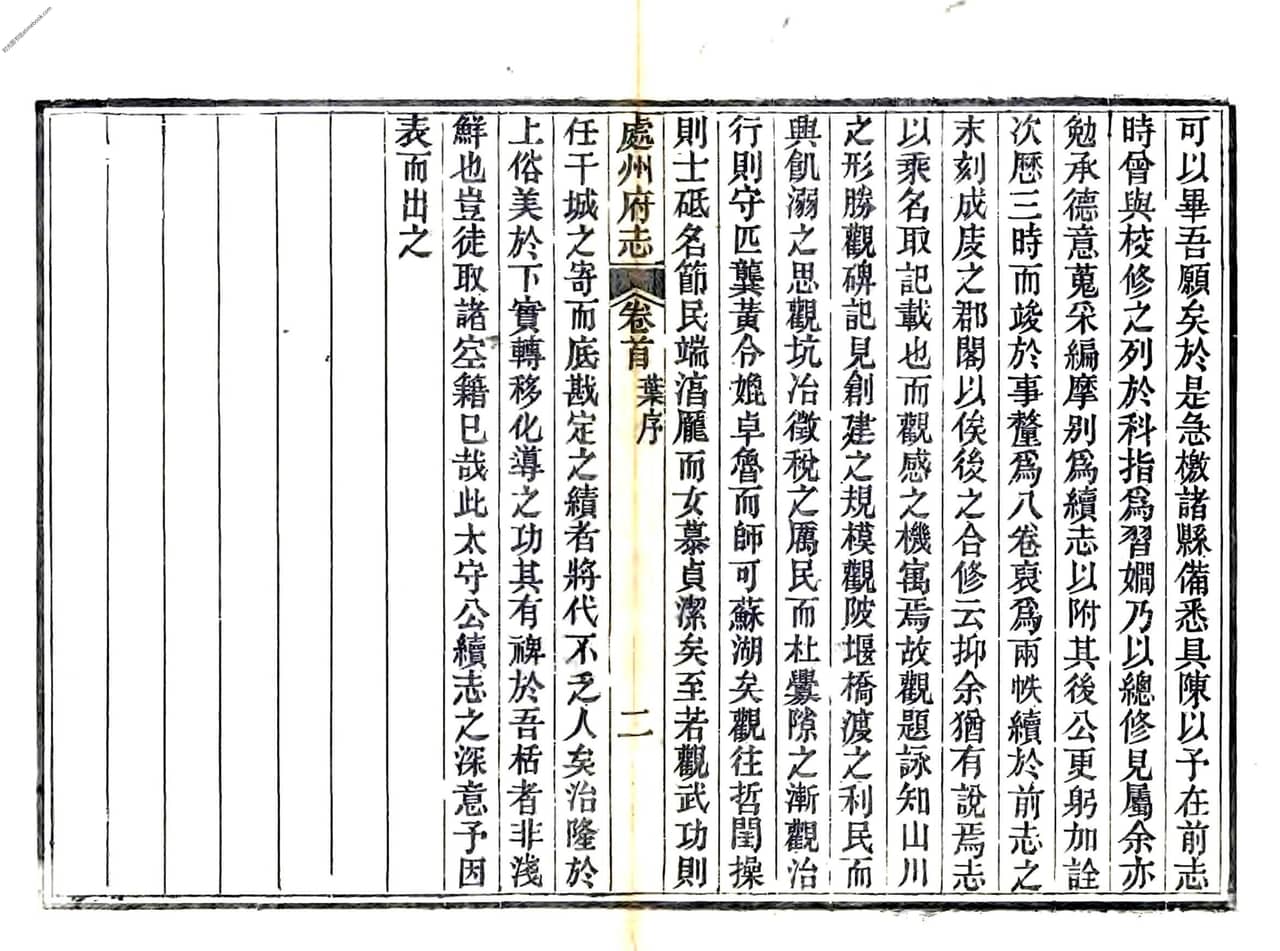 可以畢吾願矣於是急檄諸縣備悉具陳以予在前志
時曾與校修之列於科指爲習嫺乃以總修見屬余亦
勉承德意蒐采編摩别爲續志以附其後公更躬加詮
次歷三時而竣於事釐爲八卷裒爲兩帙續於前志之
末刻成庋之郡閣以俟後之合修云抑余猶有說焉志
以乘名取記載也而觀感之機寓焉故觀題詠知山川
之形勝觀碑記見創建之規模觀陂堰橋渡之利民而
興飢溺之思觀坑冶徵稅之厲民而杜釁隙之漸觀治
行則守匹龔黃令媲卓魯而師可蘇湖矣觀往哲閨操
則士砥名節民端湻龐而女慕貞潔矣至若觀武功則
處州府志 卷首 葉序 二
任干城之寄而底戡定之績者將代不乏人矣治隆於
上俗美於下實轉移化導之功其有裨於吾栝者非淺
鮮也豈徒取諸空籍已哉此太守公續志之深意予因
表而出之